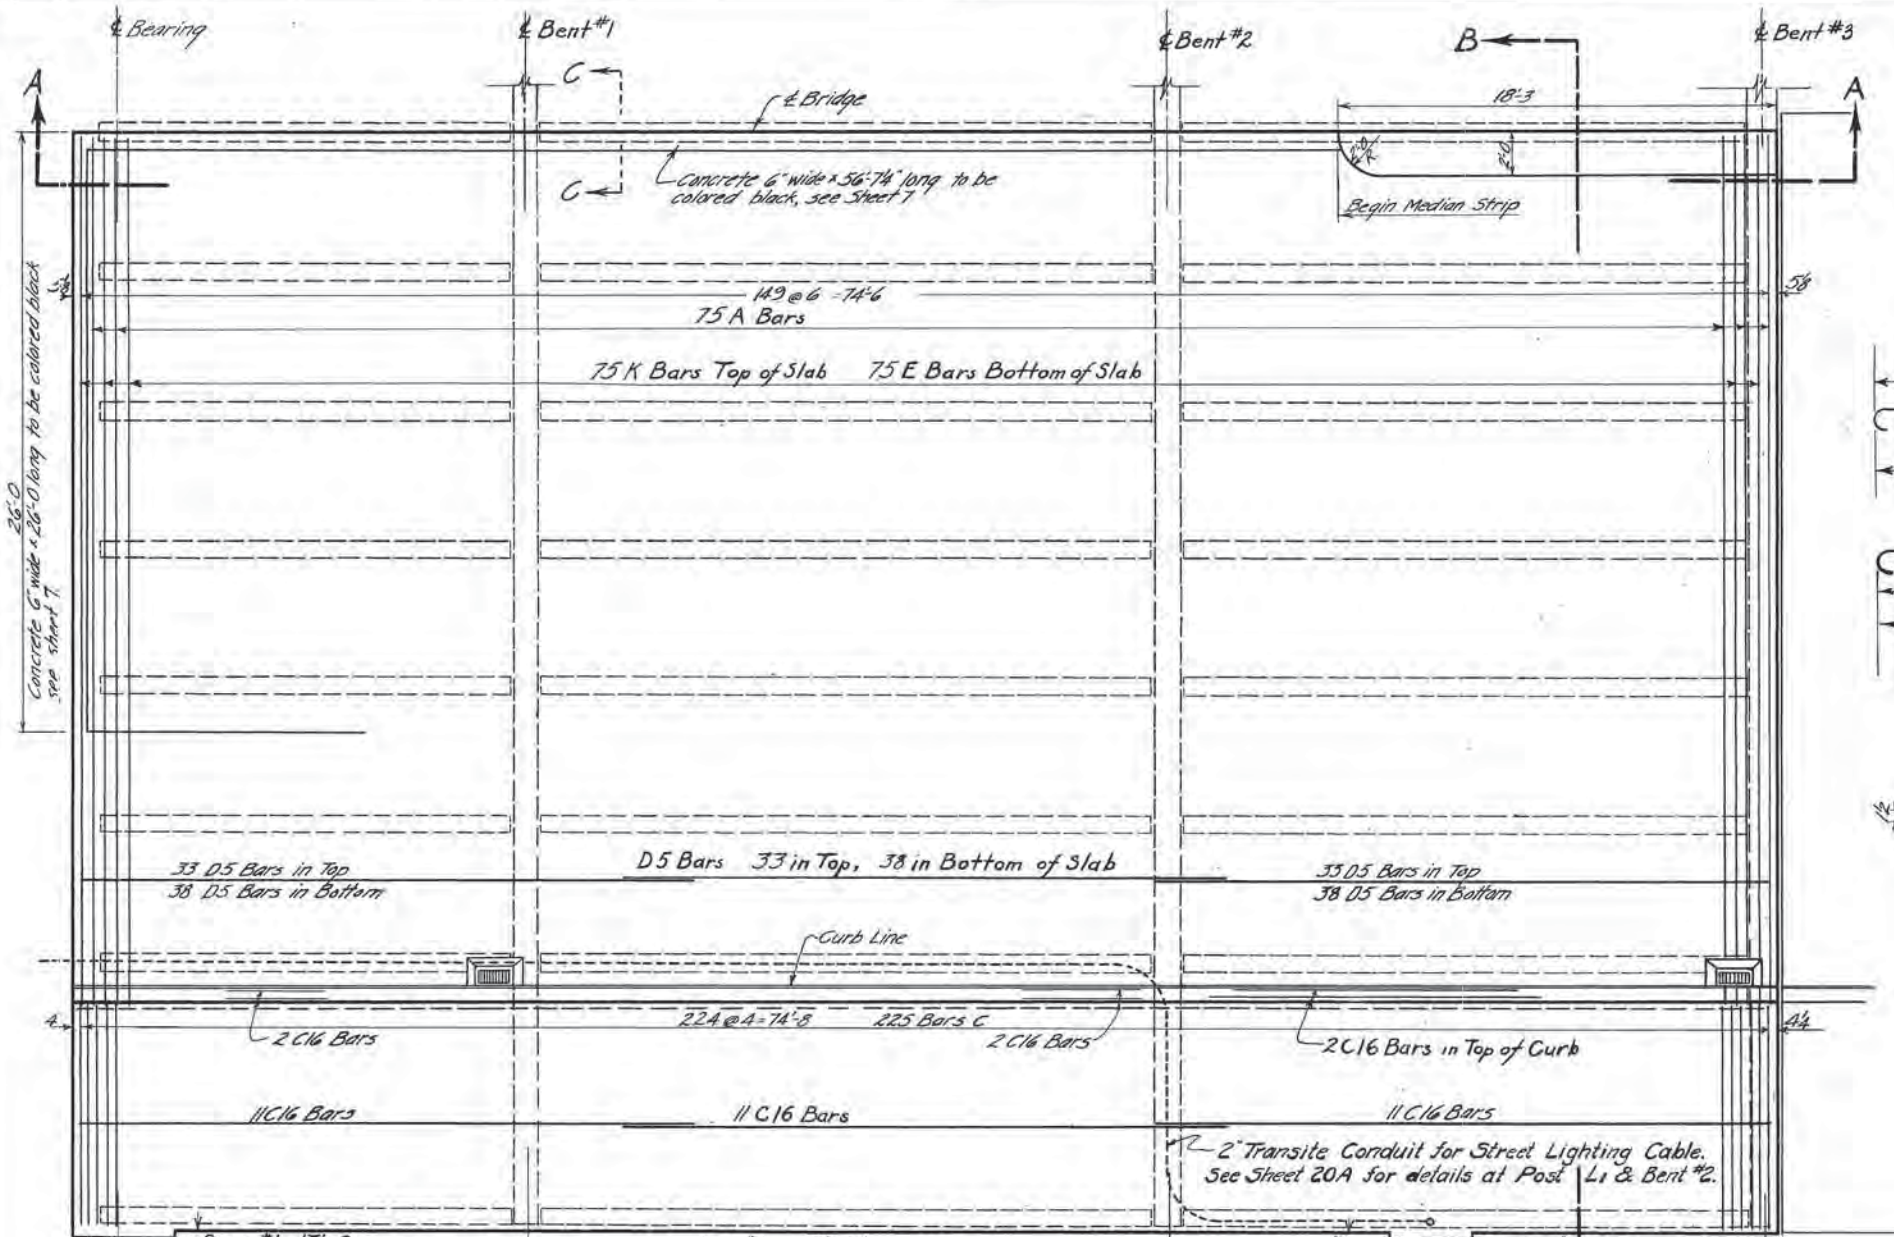 ℄ Bearing
℄ Bent #1
℄ Bent #2
℄ Bent #3
A
C
C
℄ Bridge
B
18'-3
A
2'-0 R
2'-0
Concrete 6" wide × 56'-7¼" long to be
colored black, see Sheet 7
Begin Median Strip
26'-0
Concrete 6" wide × 26'-0 long to be colored black
see sheet 7.
149 @ 6 = 74'-6
5⅛
75 A Bars
75 K Bars Top of Slab 75 E Bars Bottom of Slab
33 D5 Bars in Top
38 D5 Bars in Bottom
D5 Bars 33 in Top, 38 in Bottom of Slab
33 D5 Bars in Top
38 D5 Bars in Bottom
Curb Line
4
224 @ 4 = 74'-8 225 Bars C
4¼
2 C16 Bars
2 C16 Bars
2 C16 Bars in Top of Curb
11 C16 Bars
11 C16 Bars
11 C16 Bars
2" Transite Conduit for Street Lighting Cable.
See Sheet 20A for details at Post L1 & Bent #2.